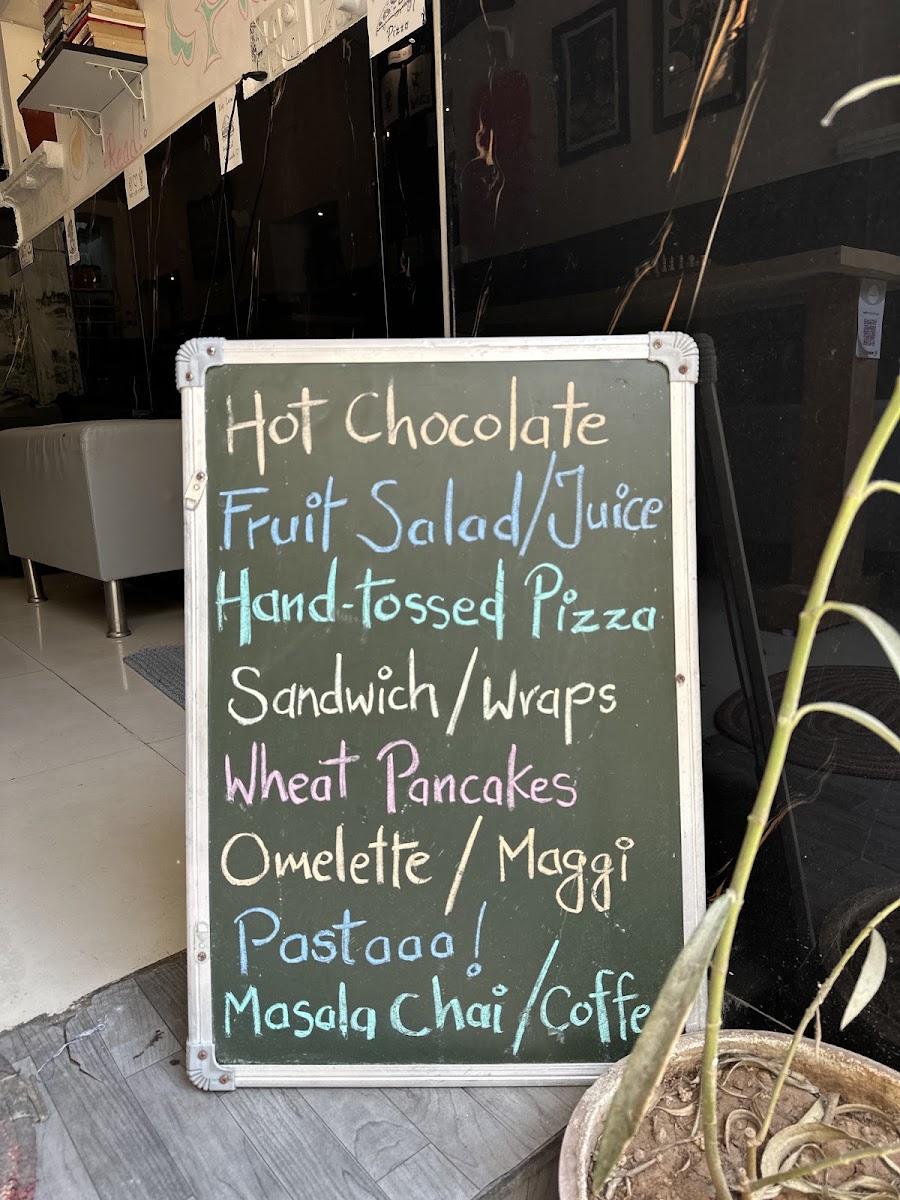 Pizza
Read!
Hot Chocolate
Fruit Salad/Juice
Hand-tossed Pizza
Sandwich/Wraps
Wheat Pancakes
Omelette / Maggi
Pastaaa!
Masala Chai/Coffe